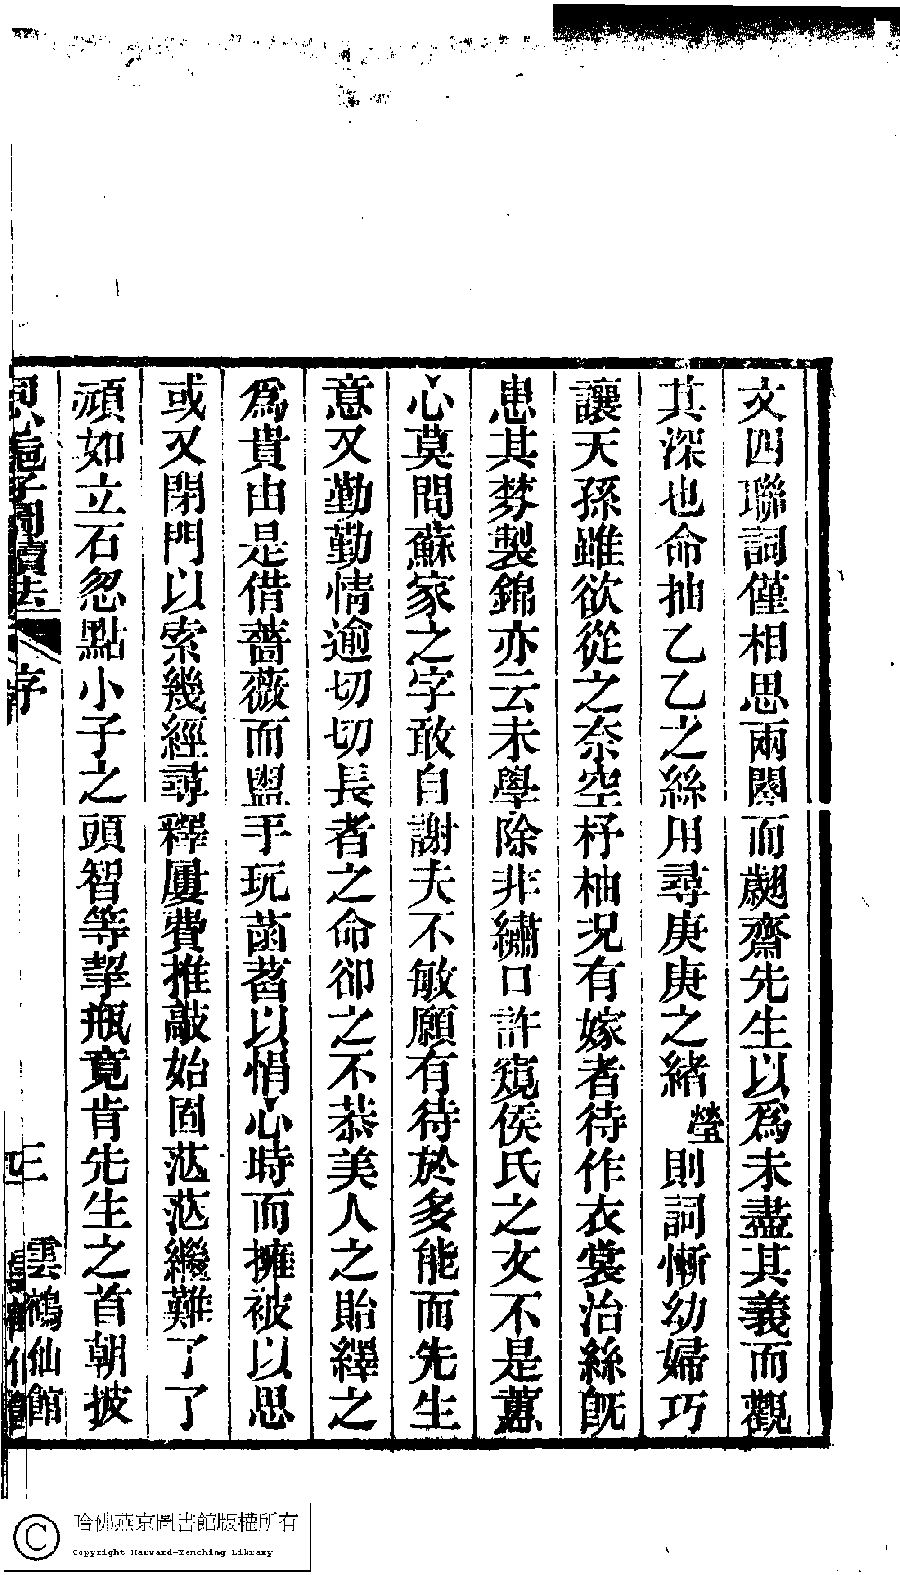 文四聯詞僅相思兩闋而趩齋先生以爲未盡其義而觀
其深也命抽乙乙之絲用尋庚庚之緒瑩則詞慚幼婦巧
讓天孫雖欲從之奈空杼柚况有嫁者待作衣裳治絲旣
患其棼製錦亦云未學除非繡口許窺侯氏之文不是蕙
心莫問蘇家之字敢自謝夫不敏願有待於多能而先生
意又勤勤情逾切切長者之命卻之不恭美人之貽繹之
爲貴由是借薔薇而盥手玩菡萏以悄心時而擁被以思
或又閉門以索幾經尋釋屢費推敲始固茫茫繼難了了
頑如立石忽點小子之頭智等挈瓶竟肯先生之首朝披
序
三
雲鶴仙館
哈佛燕京圖書館版權所有
Copyright Harvard-Yenching Library